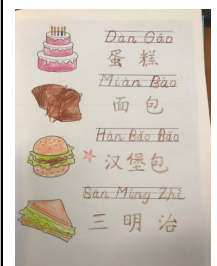 Dàn Gāo
蛋糕
Miàn Bāo
面包
Hàn Bǎo Bāo
汉堡包
Sān Míng Zhì
三明治